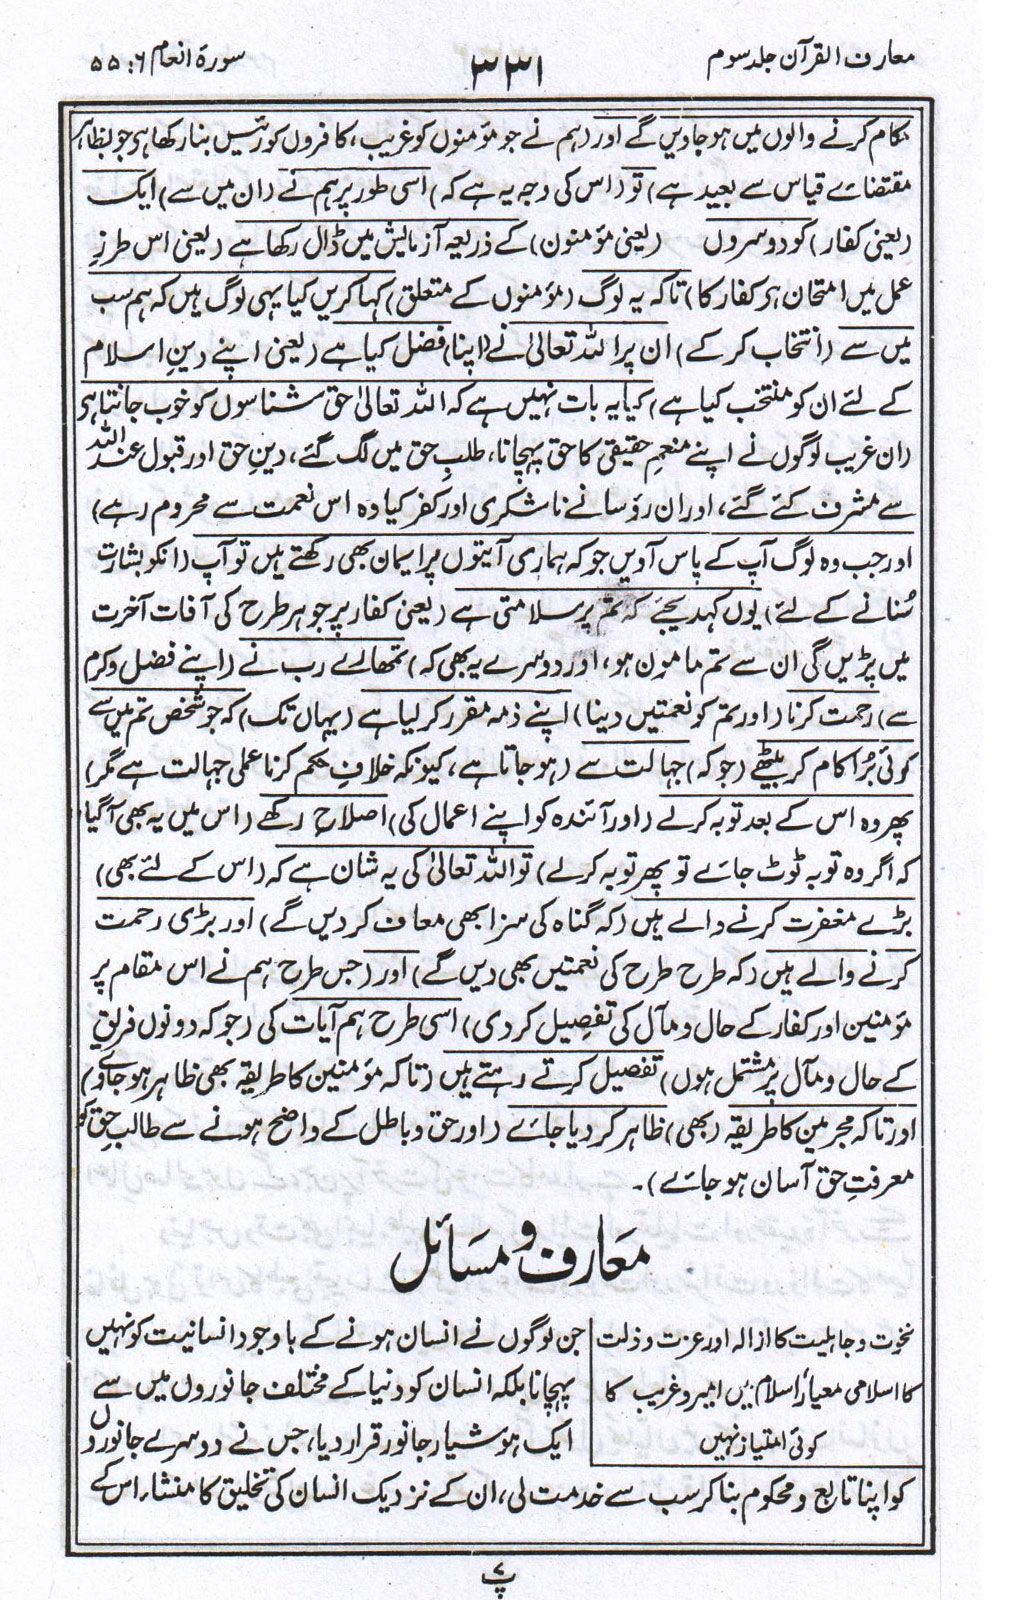 معارف القرآن جلد سوم
۳۳۱
سورۃ انعام ۶: ۵۵
کام کرنے والوں میں ہو جاویں گے اور (ہم نے جو مؤمنوں کو غریب، کافروں کو رئیس بنا رکھا ہی جو بظاہر
مقتضائے قیاس سے بعید ہے) تو (اس کی وجہ یہ ہے کہ) اسی طور پر ہم نے (ان میں سے) ایک
(یعنی کفار) کو دوسروں (یعنی مؤمنون) کے ذریعہ آزمایش میں ڈال رکھا ہے (یعنی اس طرزِ
عمل میں امتحان ہر کفار کا) تاکہ یہ لوگ (مؤمنوں کے متعلق) کہا کریں کیا یہی لوگ ہیں کہ ہم سب
میں سے (انتخاب کر کے) ان پر اللہ تعالیٰ نے (اپنا) فضل کیا ہے (یعنی اپنے دینِ اسلام
کے لئے ان کو منتخب کیا ہے) کیا یہ بات نہیں ہے کہ اللہ تعالیٰ حق شناسوں کو خوب جانتا ہی
(ان غریب لوگوں نے اپنے منعمِ حقیقی کا حق پہچانا، طلبِ حق میں لگ گئے، دینِ حق اور قبول عند اللہ
سے مشرف کئے گئے، اور ان رؤسا نے ناشکری اور کفر کیا وہ اس نعمت سے محروم رہے)
اور جب وہ لوگ آپ کے پاس آویں جو کہ ہماری آیتوں پر ایمان بھی رکھتے ہیں تو آپ (انکو بشارت
سُنانے کے لئے) یوں کہدیجئے کہ تم پر سلامتی ہے (یعنی کفار پر جو ہر طرح کی آفات آخرت
میں پڑیں گی ان سے تم مامون ہو، اور دوسرے یہ بھی کہ) تمھارے رب نے (اپنے فضل و کرم
سے) رحمت کرنا (اور تم کو نعمتیں دینا) اپنے ذمہ مقرر کر لیا ہے (یہاں تک) کہ جو شخص تم میں سے
کوئی بُرا کام کر بیٹھے (جو کہ) جہالت سے (ہو جاتا ہے، کیونکہ خلافِ حکم کرنا عملی جہالت ہے مگر)
پھر وہ اس کے بعد توبہ کر لے (اور آئندہ کو اپنے اعمال کی) اصلاح رکھے (اس میں یہ بھی آ گیا
کہ اگر وہ توبہ ٹوٹ جائے تو پھر توبہ کر لے) تو اللہ تعالیٰ کی یہ شان ہے کہ (اس کے لئے بھی)
بڑے مغفرت کرنے والے ہیں (کہ گناہ کی سزا بھی معاف کر دیں گے) اور بڑی رحمت
کرنے والے ہیں (کہ طرح طرح کی نعمتیں بھی دیں گے) اور (جس طرح ہم نے اس مقام پر
مؤمنین اور کفار کے حال و مآل کی تفصیل کر دی) اسی طرح ہم آیات کی (جو کہ دونوں فریق
کے حال و مآل پر مشتمل ہوں) تفصیل کرتے رہتے ہیں (تاکہ مؤمنین کا طریقہ بھی ظاہر ہو جاوے)
اور تاکہ مجرمین کا طریقہ (بھی) ظاہر کر دیا جائے (اور حق و باطل کے واضح ہونے سے طالبِ حق کو
معرفتِ حق آسان ہو جائے)۔
معارف و مسائل
نخوت و جاہلیت کا ازالہ اور عزت و ذلت
کا اسلامی معیار، اسلام میں امیر و غریب کا
کوئی امتیاز نہیں
جن لوگوں نے انسان ہونے کے باوجود انسانیت کو نہیں
پہچانا بلکہ انسان کو دنیا کے مختلف جانوروں میں سے
ایک ہوشیار جانور قرار دیا، جس نے دوسرے جانوروں
کو اپنا تابع و محکوم بنا کر سب سے خدمت لی، ان کے نزدیک انسان کی تخلیق کا منشاء اس کے
پ ۷